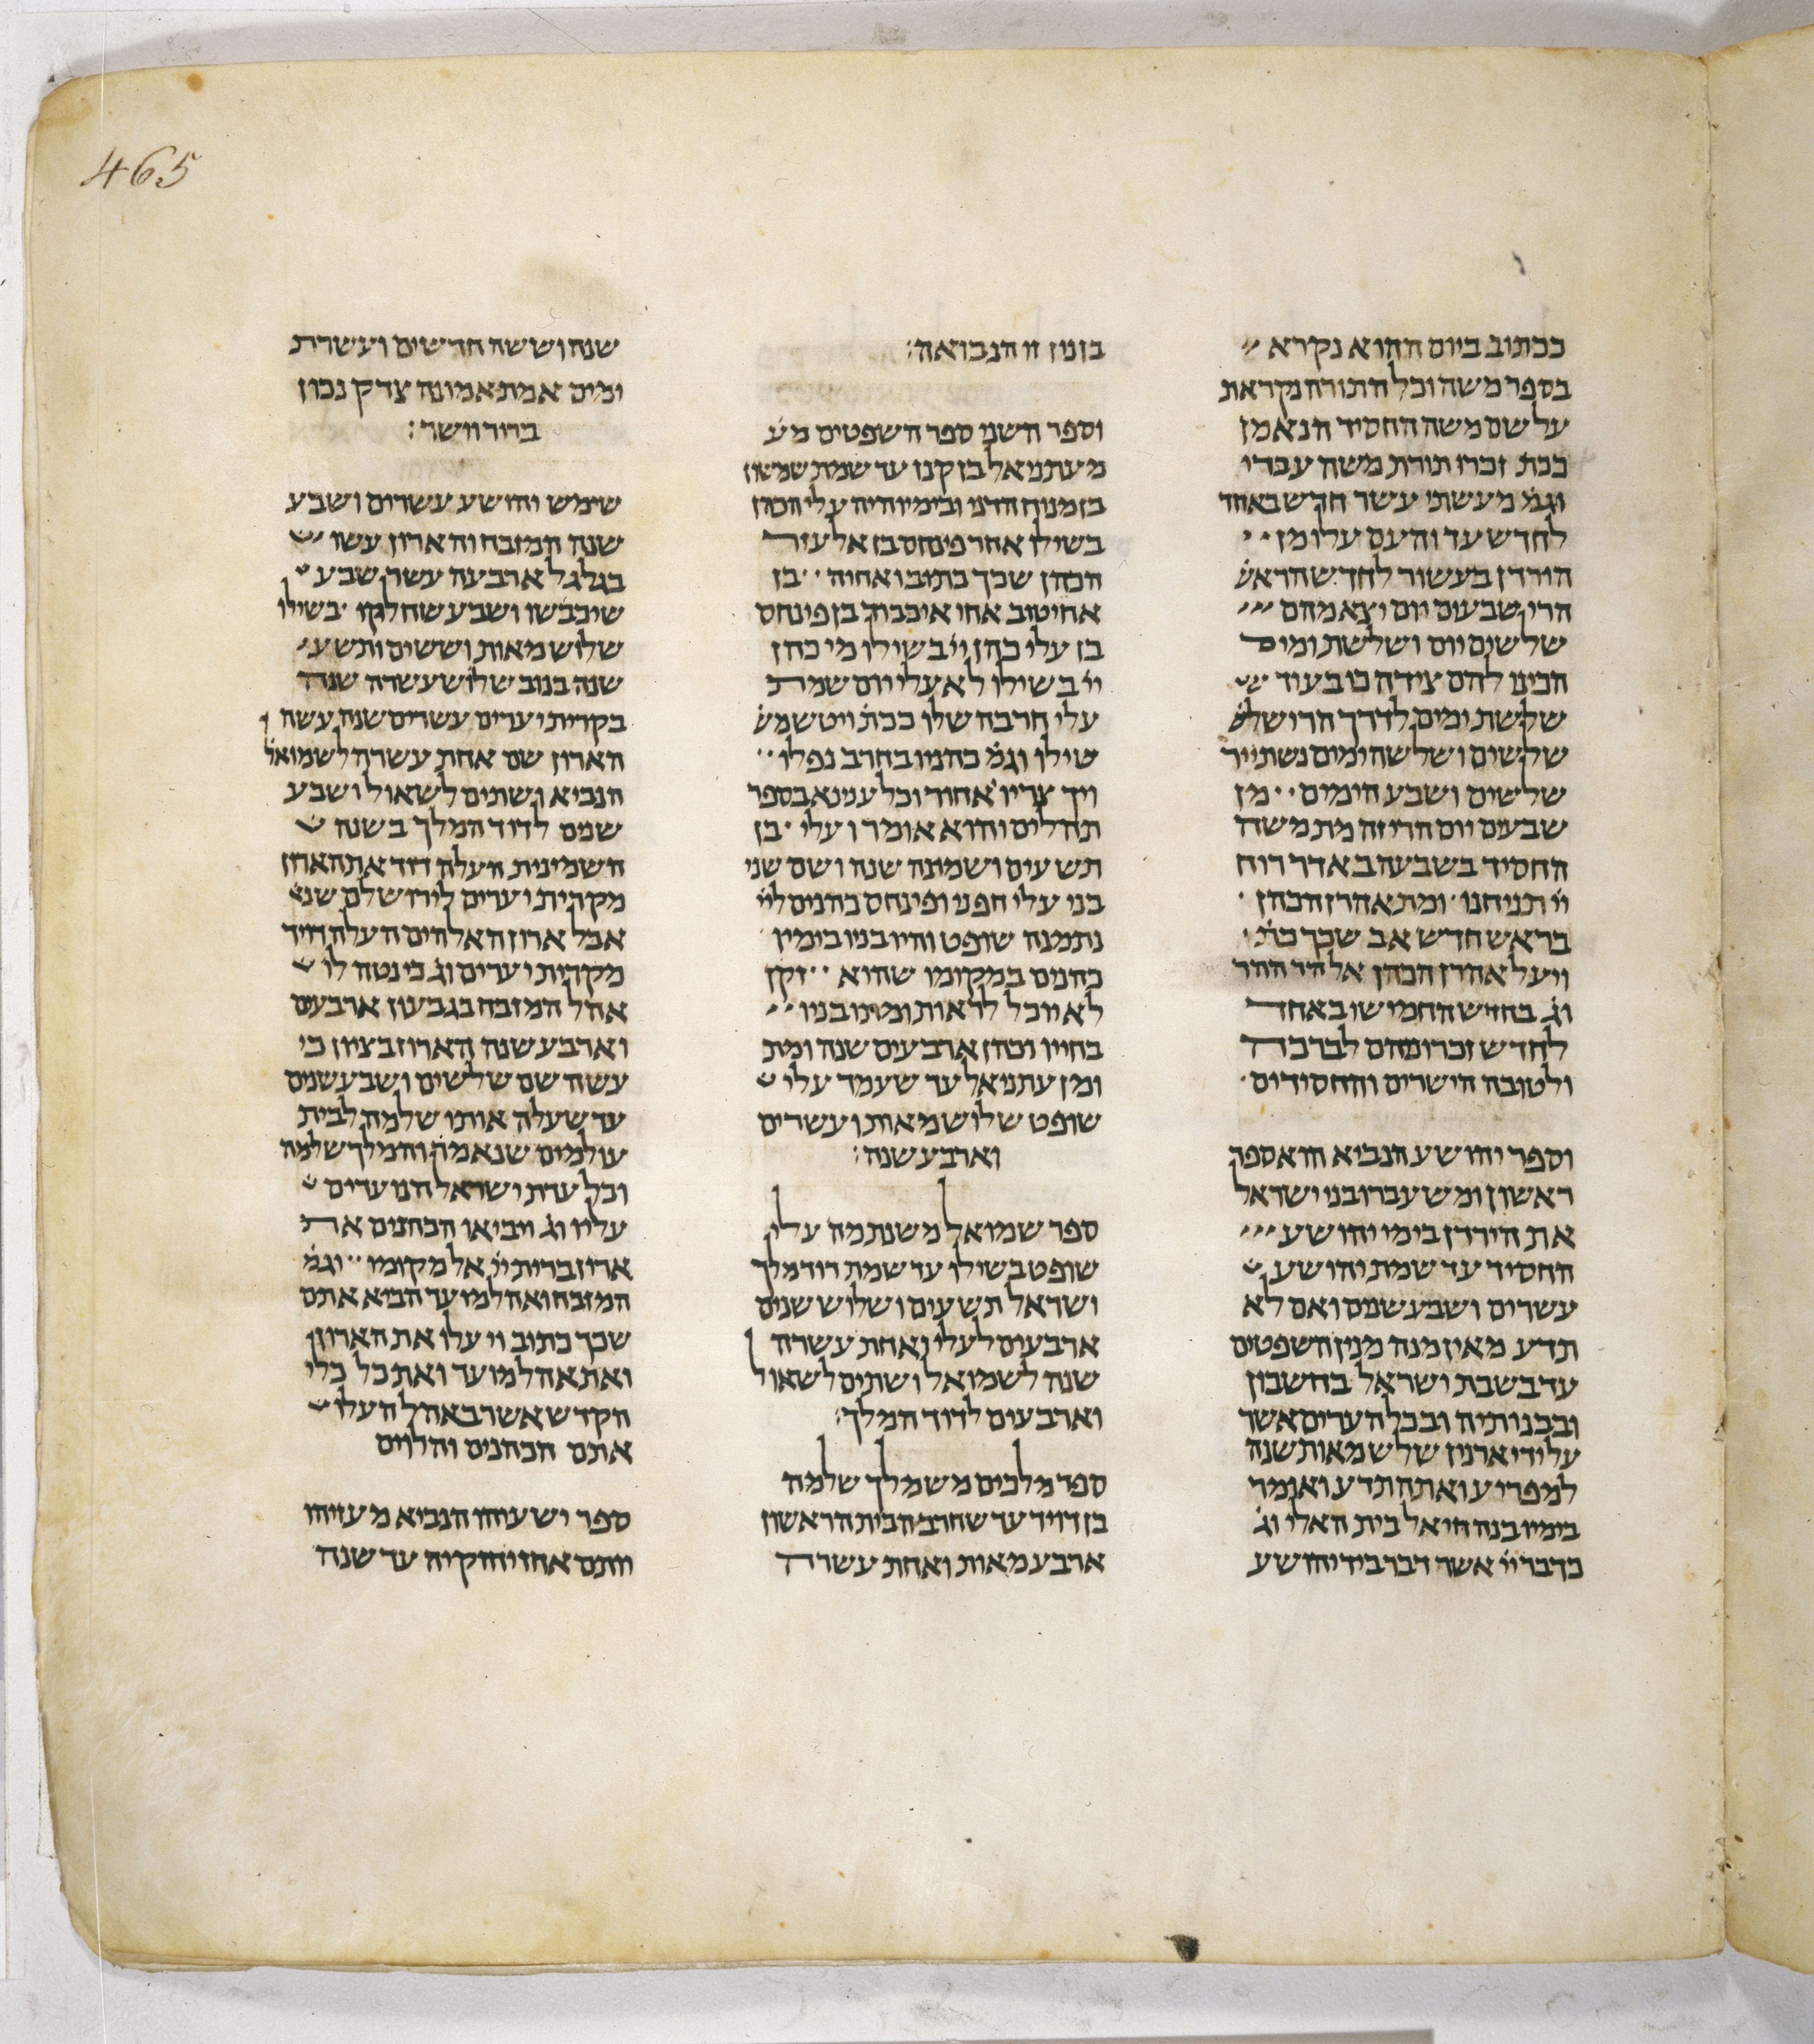 465
ככתוב ביום ההוא נקרא
בספר משה וכל התורה נקראת
על שם משה החסיד הנאמן
ככת זכרו תורת משה עבדי
וגמ מעשתי עשר חדש באחד
לחדש עד והעם עלו מן
הירדן בעשור לחדש הראש
הרי שבעים יום יצא מהם
שלשים יום ושלשת ומים
הכינו להם צידה כי בעוד
שלשת ימים לדרך הרי שלש
שלשים ושלשה ימים נשתייר
שלשים ושבעה ימים מן
שבעים יום הרי זה מת משה
החסיד בשבעה באדר רוח
יי תניחנו ומת אהרן הכהן
בראש חדש אב שכך כת
ויעל אהרן הכהן אל הר ההר
וג בחדש החמישי באחד
לחדש זכרונהם לברכה
ולטובה הישרים והחסידים
וספר יהושע הנביא הוא ספר
ראשון ומשעברו בני ישראל
את הירדן בימי יהושע
החסיד עד שמת יהושע
עשרים ושבע שנים ואם לא
תדע מאיזמנה מנין השפטים
עד בשבת ישראל בחשבון
ובבנותיה ובכל הערים אשר
על ידי ארנון שלש מאות שנה
למפריע ואתה תדע ואומר
בימיו בנה חיאל בית האלי וג
כדבר יי אשר דבר ביד יהושע
בזנון זו הנבואה:
וספר השני ספר השפטים מע
מעתניאל בן קנז עד שמת שמשון
בזמנוח הדני ובימיו היה עלי הכהן
בשילו אחר פינחס בן אלעזר
הכהן שכך כתיב ואחיה בן
אחיטוב אחי איכבוד בן פינחס
בן עלי כהן יי בשילו מי כהן
יי בשילו לא עלי יום שמת
עלי חרבה שלו ככת ויטש משכ
שילו וגמ כהניו בחרב נפלו
ויך צריו אחור וכל ענינא בספר
תהלים והוא אומר ועלי בן
תשעים ושמנה שנה ושם שני
בני עלי חפני ופינחס כהנים ליי
נתמנה שופט והיו בניו בימיו
כהנים במקומו שהוא זקן
לא יוכל לראות ומתו בניו
בחייו וכהן ארבעים שנה ומת
ומן עתניאל עד שעמד עלי
שופט שלוש מאות ועשרים
וארבע שנה:
ספר שמואל משנתמה עלי
שופט בשילו עד שמת דוד מלך
ישראל תשעים ושלוש שנים
ארבעים לעלי ואחת עשרה
שנה לשמואל ושתים לשאול
וארבעים לדוד המלך:
ספר מלכים משמלך שלמה
בן דויד עד שחרב הבית הראשון
ארבע מאות ואחת עשרה
שנה וששה חדשים ועשרת
ימים אמת אמונה צדק נכון
ברור וישר:
שימש יהושע עשרים ושבע
שנה המזבח והארון עשו
בגלגל ארבעה עשר שבע
שיכבשו ושבע שחלקו בשילו
שלוש מאות וששים ותשע
שנה בנוב שלוש עשרה שנה
בקרית יערים עשרים שנה עשה
הארון שם אחת עשרה לשמואל
הנביא ושתים לשאול ושבע
שנים לדוד המלך בשנה
השמינית העלה דוד את הארון
מקרית יערים לירושלם שנא
אבל ארון האלהים העלה דויד
מקרית יערים וג כי נטה לו
אהל המזבח בגבעון ארבעים
וארבע שנה הארון בציון כי
עשה שם שלשים ושבע שנים
עד שעלה אותו שלמה לבית
עולמים שנאמ והמלך שלמה
וכל עדת ישראל הנועדים
עליו וג ויביאו הכהנים את
ארון ברית יי אל מקומו וגמ
המזבח ואהל מועד הביא אתם
שכך כתוב ויעלו את הארון
ואת אהל מועד ואת כל כלי
הקדש אשר באהל העלו
אתם הכהנים והלוים
ספר ישעיהו הנביא מעזיהו
יותם אחז יחזקיה עד שנה